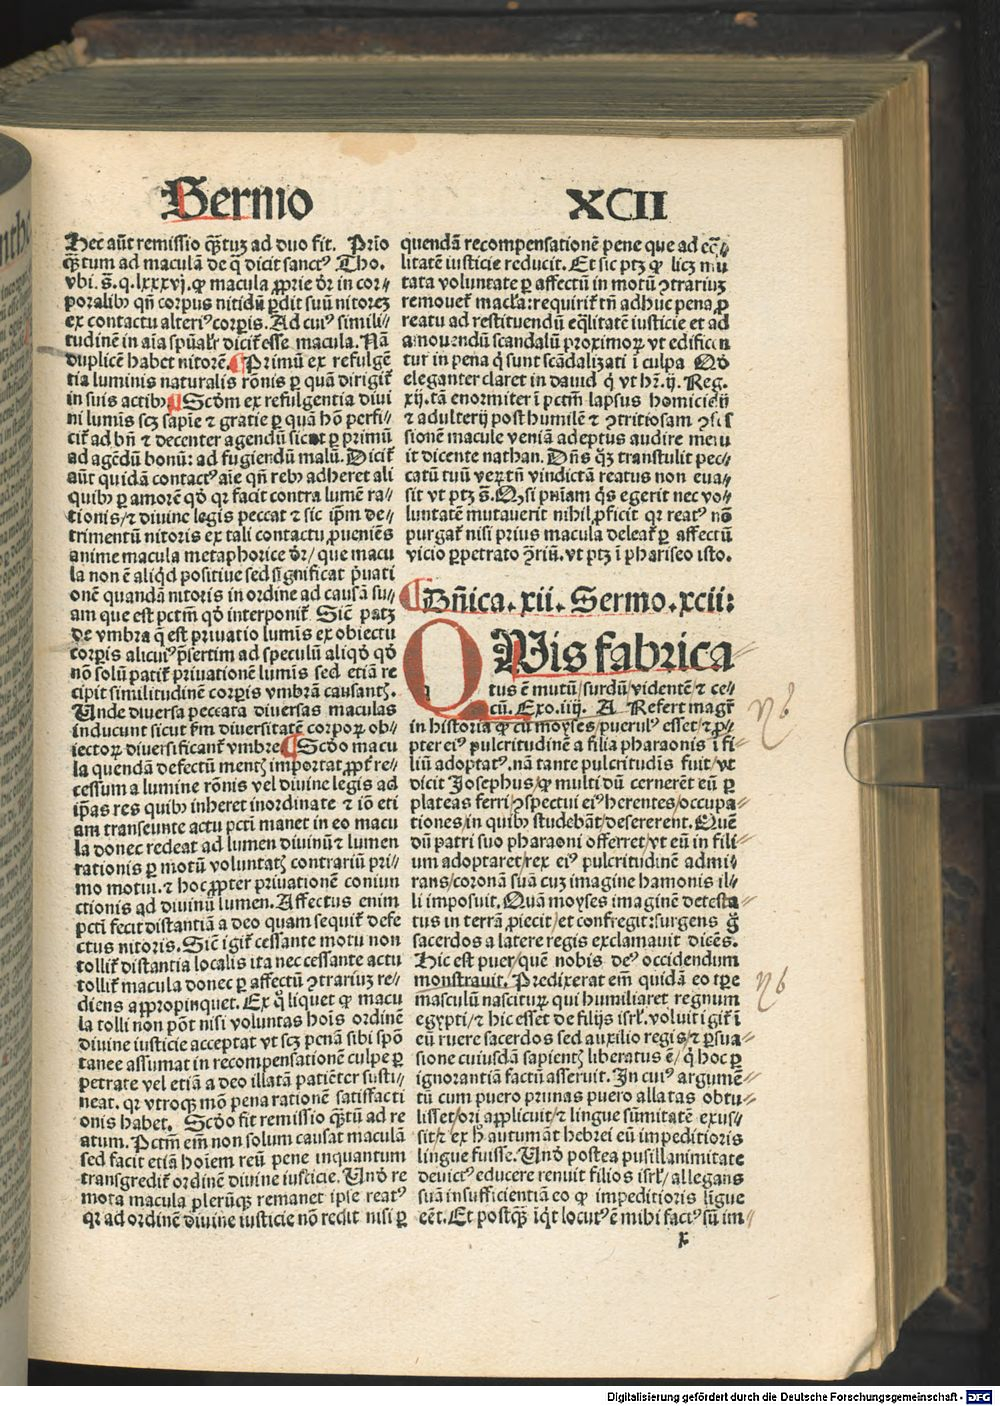 Sermo XCII
Hec aūt remissio q̄ꝫtuꝫ ad duo fit. Prīo
q̄ꝫtum ad maculā de q̄ dicit sanctꝰ Tho.
vbi. s̄. q. lxxxvj. ꝙ macula ꝓprie dr̄ in cor⸗
poralibꝰ qn̄ corpus nitidū ꝑdit suū nitorez
ex contactu alteriꝰ corꝑis. Ad cuiꝰ simili⸗
tudinē in aīa spūalr̄ dicit̄ esse macula. Nā
duplicē habet nitorē. ¶ Primū ex refulgē
tia luminis naturalis rōnis ꝑ quā dirigit̄
in suis actibꝰ ¶ Scōm ex refulgentia diui
ni lumīs scꝫ sapīe ⁊ gratie ꝑ quā hō perfi⸗
cit̄ ad bn̄ ⁊ decenter agendū sicut ꝑ primū
ad agēdū bonū: ad fugiendū malū. Dicit̄
aūt quidā contactꝰ aīe qn̄ rebꝰ adheret ali
quibꝰ ꝑ amorē qd̓ qr facit contra lumē ra⸗
tionis/⁊ diuine legis peccat ⁊ sic ip̄m de⸗
trimentū nitoris ex tali contactu ꝓueniēs
anime macula metaphorice dr̄/ que macu
la non ē aliqd̓ positiue sed significat p̄uati
onē quandā nitoris in ordine ad causā su⸗
am que est pctm̄ qd̓ interponit̄. Sicē patꝫ
de vmbra q̄ est priuatio lumīs ex obiectu
corꝑis alicuiꝰ p̄sertim ad speculū aliqd̓ qd̓
nō solū patit̄ priuationē lumīs sed etiā re
cipit similitudinē corꝑis vmbrā causantꝭ.
Unde diuersa peccata diuersas maculas
inducunt sicut fm̄ diuersitatē corporꝝ ob⸗
iectorꝝ diuersificant̄ vmbre ¶ Scōo macu
la quendā defectū mentꝭ importat ꝓpt̄ re⸗
cessum a lumine rōnis vel diuine legis ad
ip̄as res quibꝰ inheret inordinate ⁊ iō eti
am transeunte actu pctī manet in eo macu
la donec redeat ad lumen diuinū ⁊ lumen
rationis ꝑ motū voluntatꝭ contrariū pri⸗
mo motui. ⁊ hoc ꝓpter priuationē coniun
ctionis ad diuinū lumen. Affectus enim
pctī fecit distantiā a deo quam sequit̄ defe
ctus nitoris. Sicē igit̄ cessante motu non
tollit̄ distantia localis ita nec cessante actu
tollit̄ macula donec ꝑ affectū ꝯtrariuz re⸗
diens appropinquet. Ex q̊ liquet ꝙ macu
la tolli non pōt nisi voluntas hoīs ordinē
diuine iusticie acceptat vt scꝫ penā sibi spō
tanee assumat in recompensationē culpe ꝑ
petrate vel etiā a deo illatā patiēter susti⸗
neat. qr vtroqꝫ mō pena rationē satisfacti
onis habet. Scōo fit remissio q̄ꝫtū ad re
atum. Pctm̄ em̄ non solum causat maculā
sed facit etiā hoīem reū pene inquantum
transgredit̄ ordinē diuine iusticie. Und̓ re
mota macula plerūqꝫ remanet ipse reatꝰ
qr ad ordinē diuine iusticie nō redit nisi ꝑ
quendā recompensationē pene que ad eq̄⸗
litatē iusticie reducit. Et sic ptꝫ ꝙ licꝫ mu
tata voluntate ꝑ affectū in motū ꝯtrariuz
remouet̄ macla: requirit̄ tn̄ adhuc pena ꝓ
reatu ad restituendū eq̄litatē iusticie et ad
amouendū scandalū proximorꝝ vt edificen
tur in pena q̓ sunt scādalizati ī culpa Qd̓
eleganter claret in dauid q̓ vt hr̄. ij. Reg.
xij. tā enormiter ī pctm̄ lapsus homicidij
⁊ adulterij post humilē ⁊ ꝯtritiosam ꝯfes
sionē macule veniā adeptus audire meru
it dicente nathan. Dn̄s qꝫ transtulit pec⸗
catū tuū veꝝtn̄ vindictā reatus non eua⸗
sit vt ptꝫ s̄. Qd̓si pn̄iam q̓s egerit nec vo⸗
luntatē mutauerit nihil ꝓficit qr reatꝰ nō
purgat̄ nisi prius macula deleat̄ ꝑ affectū
vicio ꝑpetrato ꝯ̄riū. vt ptꝫ ī phariseo isto.
¶ Dn̄ica. xii. Sermo. xcii:
QUis fabrica⸗
tus ē mutū/surdū/videntē ⁊ ce⸗
cū. Exo. iiij. A Refert magr̄
in historia ꝙ cū moyses/puerulꝰ esset/⁊ ꝓ⸗
pter eiꝰ pulcritudinē a filia pharaonis ī fi⸗
liū adoptatꝰ. nā tante pulcritudis fuit/vt
dicit Josephus/ꝙ multi dū cernerēt eū ꝑ
plateas ferri/ꝯspectui eiꝰ herentes/occupa⸗
tiones/in quibꝰ studebāt/desererent. Quē
dū patri suo pharaoni offerret/vt eū in fili⸗
um adoptaret/rex eiꝰ pulcritudinē admi⸗
rans/coronā suā cuꝫ imagine hamonis il⸗
li imposuit. Quā moyses imaginē detesta⸗
tus in terrā ꝓiecit/et confregit: surgens g̊
sacerdos a latere regis exclamauit dicēs.
Hic est puer/quē nobis deꝰ occidendum
monstrauit. Predixerat em̄ quidā eo tꝑe
masculū nascituꝝ qui humiliaret regnum
egypti/⁊ hic esset de filijs isrl̄. voluit igit̄ ī
eū ruere sacerdos sed auxilio regis/⁊ ꝑsua⸗
sione cuiusdā sapientꝭ liberatus ē/ q̓ hoc ꝑ
ignorantiā factū asseruit. In cuiꝰ argumē⸗
tū cum puero prunas puero allatas obtu⸗
lisset/ori applicuit/⁊ lingue sūmitatē exus⸗
sit/⁊ ex h̓ autumāt hebrei eū impeditioris
lingue fuisse. Und̓ postea pusillanimitate
deuictꝰ educere renuit filios isrl̄/ allegans
suā insufficientiā eo ꝙ impeditioris līgue
eēt. Et postq̄ꝫ īq̓t locutꝰ ē mihi factꝰ sū im⸗
x
Digitalisierung gefördert durch die Deutsche Forschungsgemeinschaft - DFG